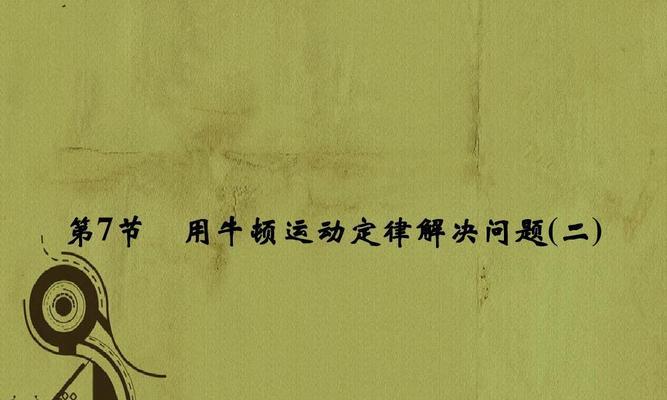 第7节 用牛顿运动定律解决问题(二)